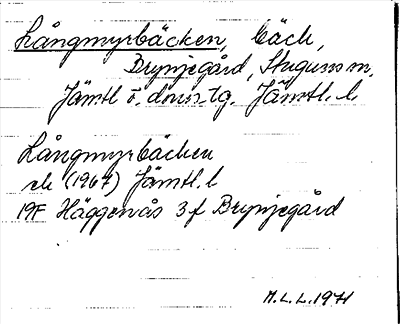 Långmyrbäcken, bäck,
Brynjegård, Stuguns sn,
Jämtl ö. doms tg. Jämtl. l
Långmyrbäcken
ek (1967) Jämtl. l
19F Häggenås 3f Brynjegård
M.L.L. 1971